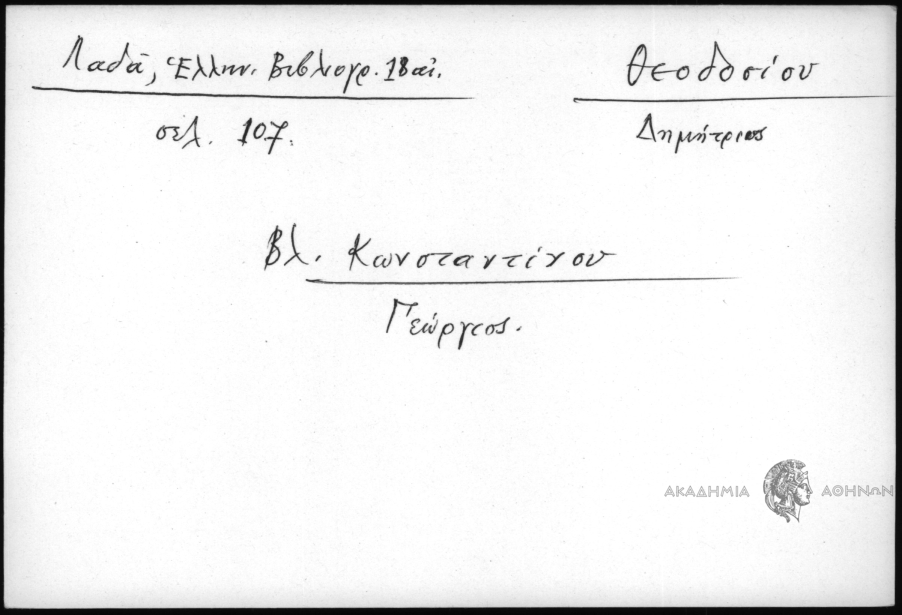 Λαδᾶ, Ἑλλην. Βιβλιογρ. 18 αἰ.
σελ. 107.
Θεοδοσίου
Δημήτριος
Βλ. Κωνσταντίνου
Γεώργιος.
ΑΚΑΔΗΜΙΑ ΑΘΗΝΩΝ